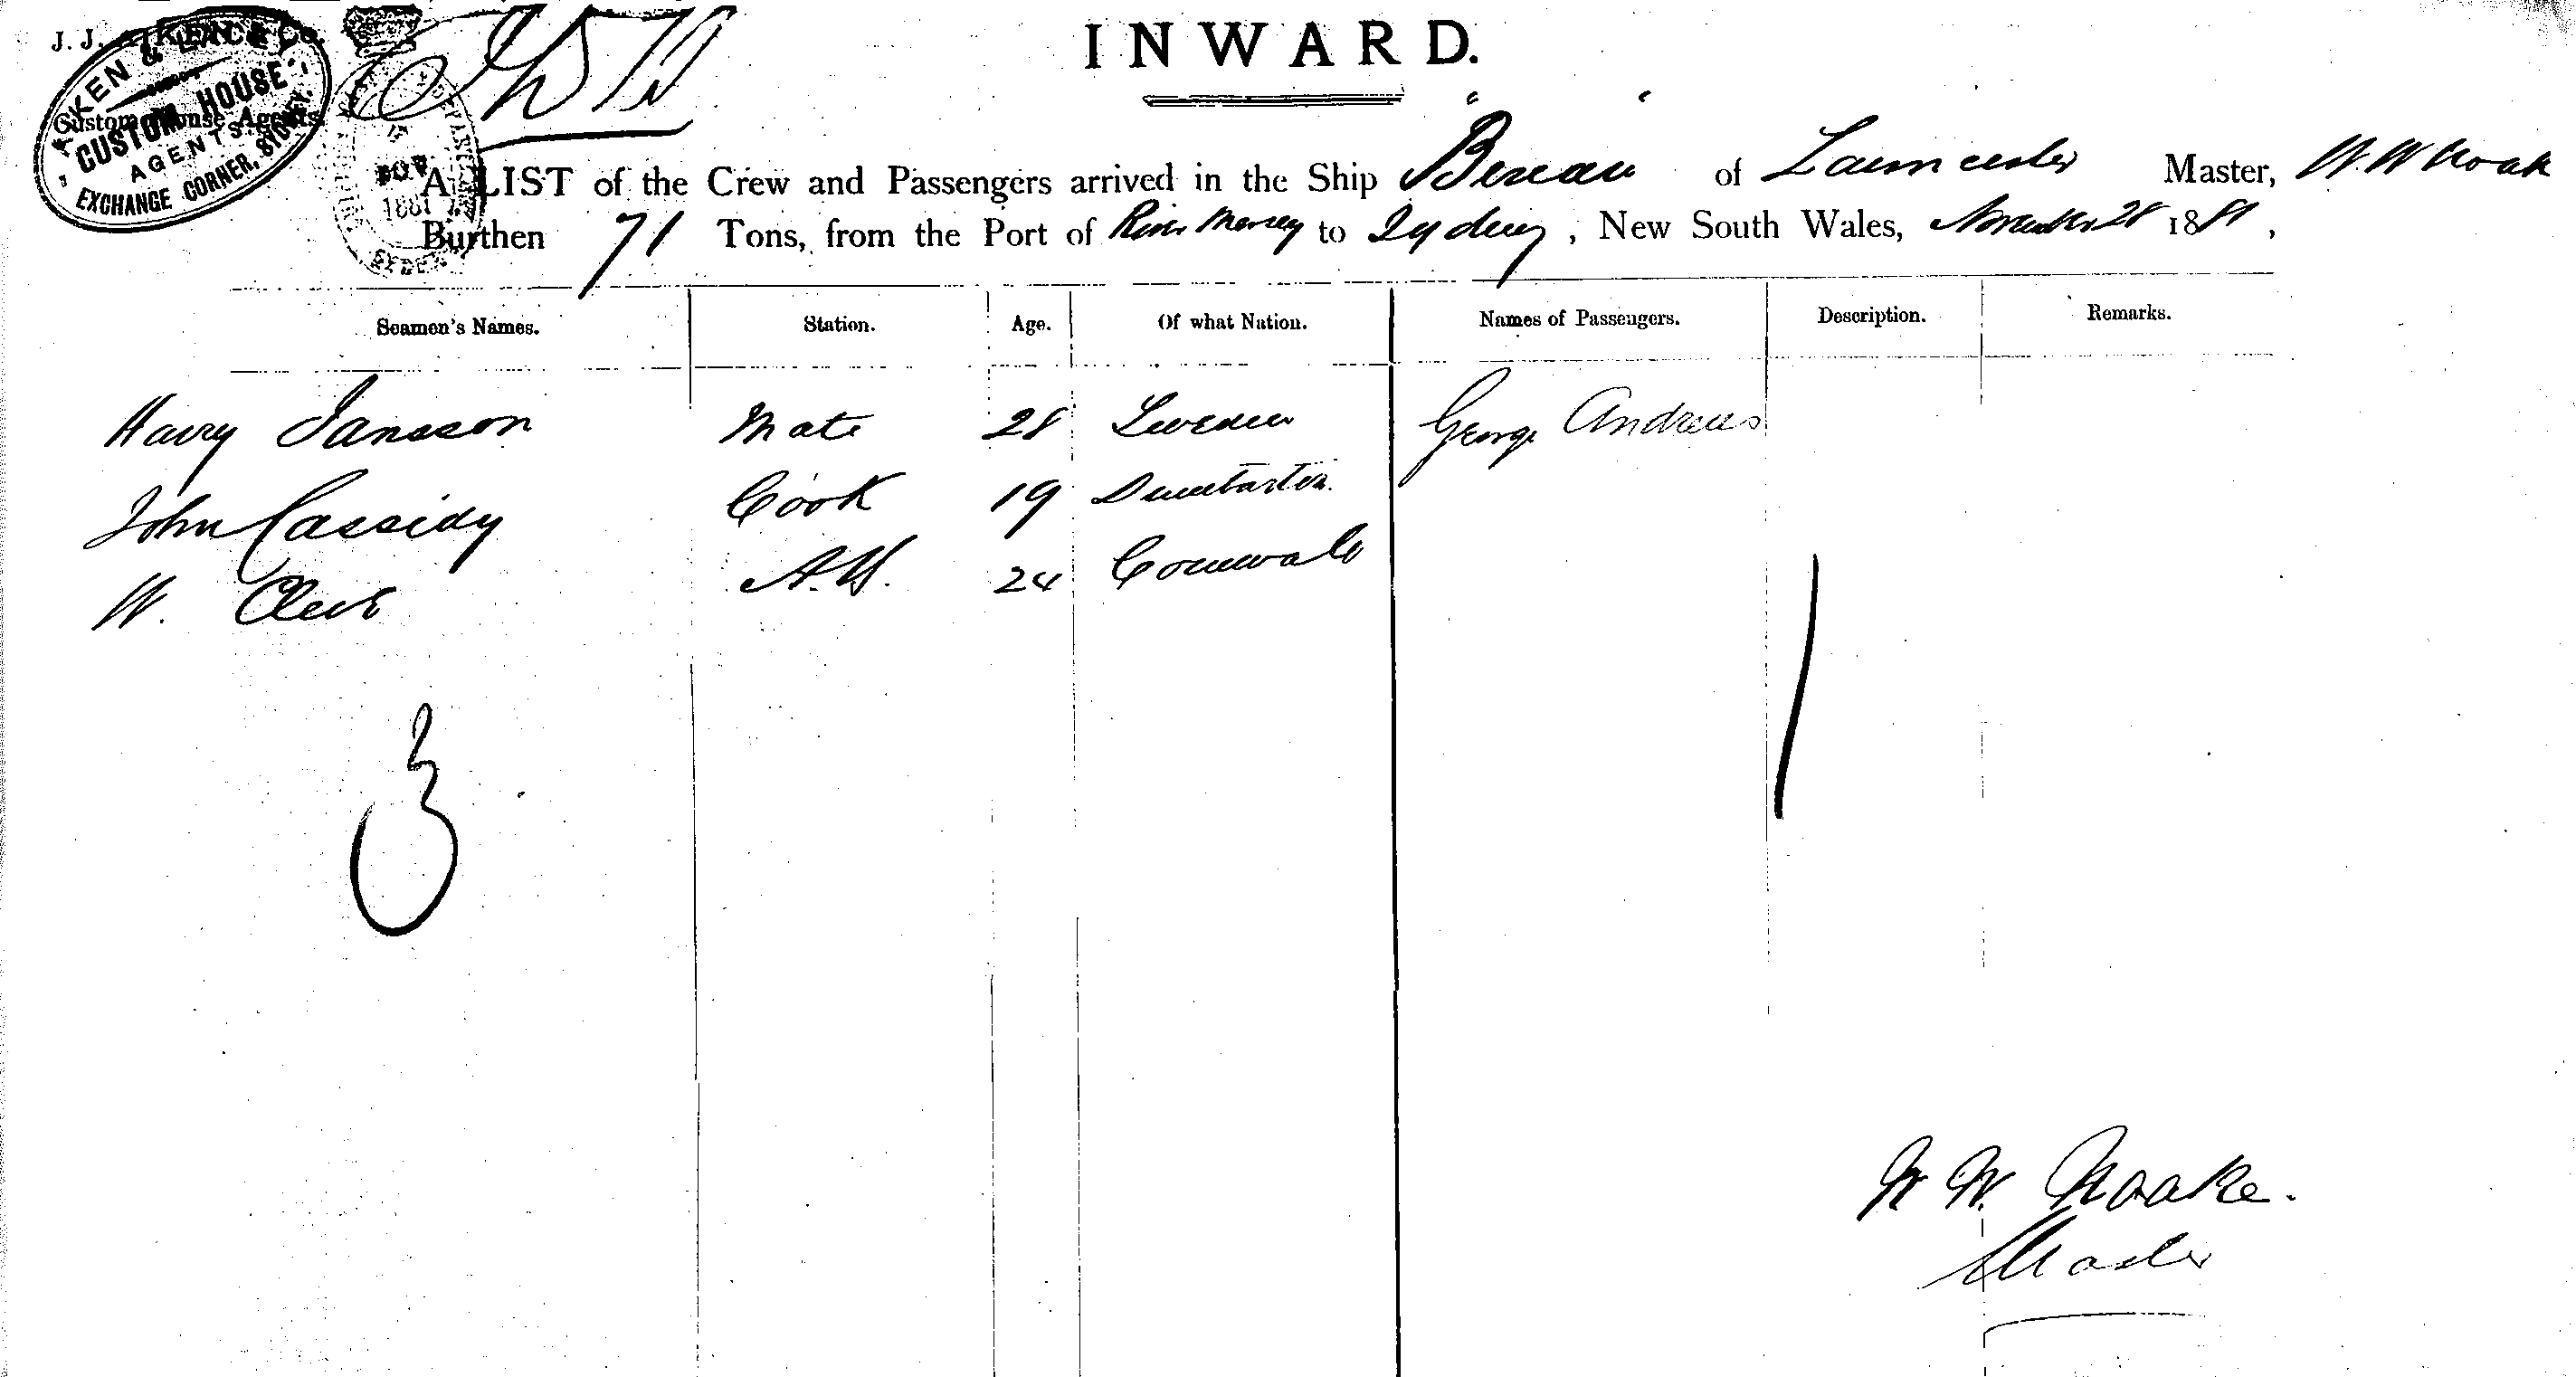 INWARD.
J. J. AITKEN & Co.
Custom House Agents
AITKEN &
CUSTOM HOUSE
AGENTS
EXCHANGE CORNER, SYDNEY.
1881
A LIST of the Crew and Passengers arrived in the Ship Berean of Launceston Master, W. W Noake
Burthen 71 Tons, from the Port of River Mersey to Sydney, New South Wales, November 28 1881,
Seamen's Names. Station. Age. Of what Nation. Names of Passengers. Description. Remarks.
Harry Jansson Mate 28 Sweden George Andrews
John Cassidy Cook 19 Dumbarton
W. A.B. 24 Cornwall
3 1
W W. Noake.
Master